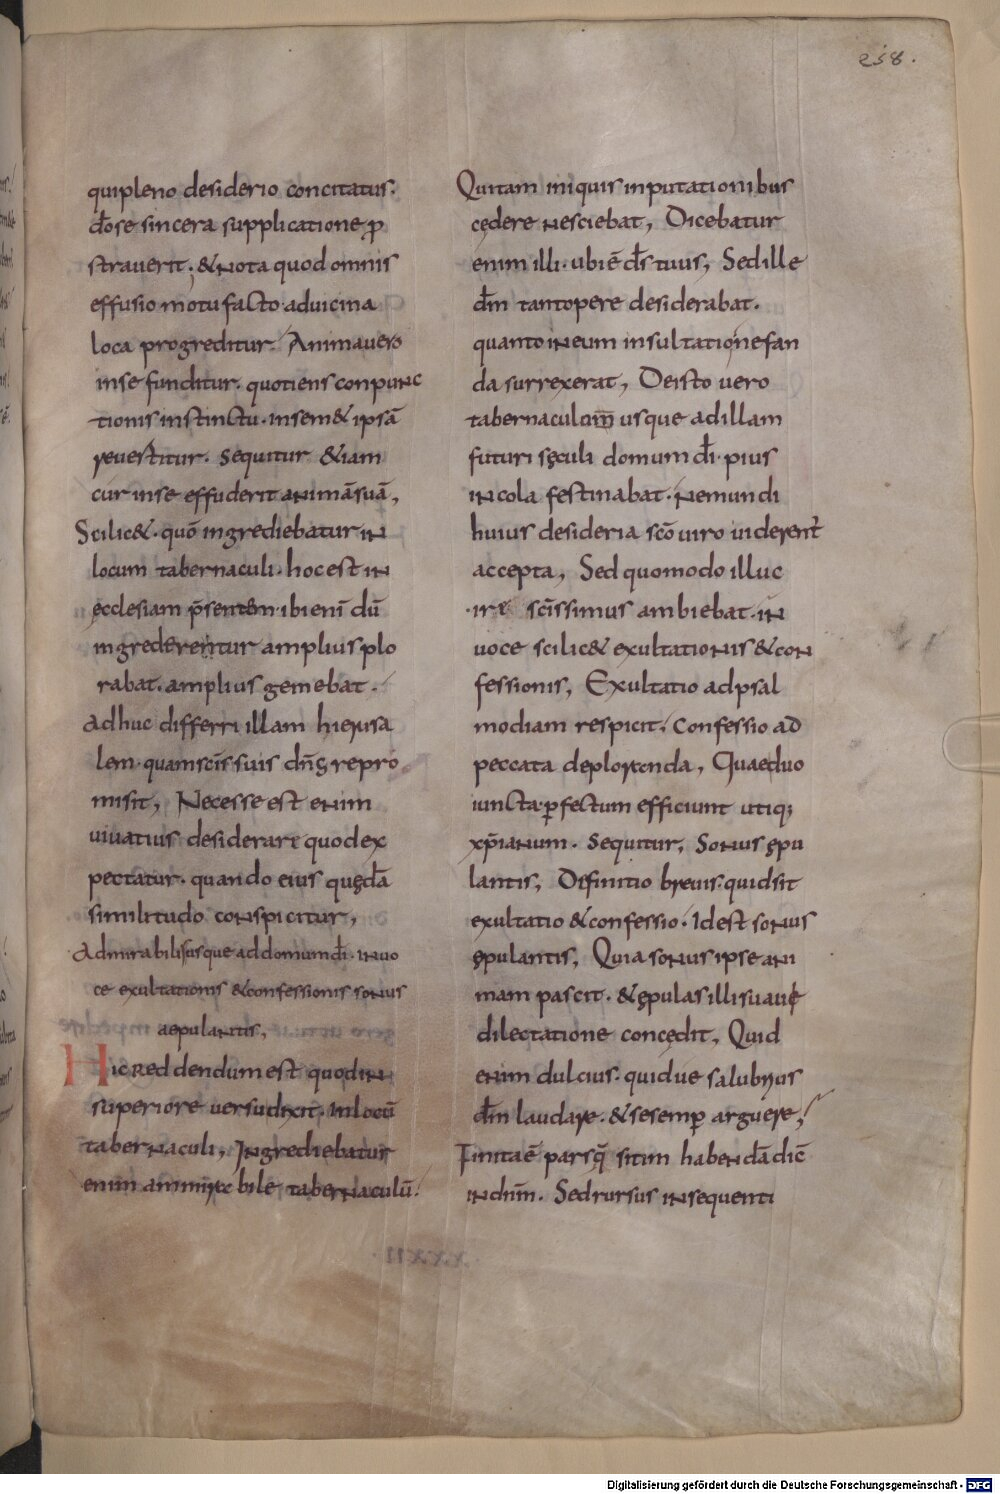 258.
quipleno desiderio concitatus.
dōse sincera supplicatione ꝓ
straverit; &nota quod omnis
effusio motu facto aduicina
loca progreditur. Animauero
inse funditur. quotiens conpunc
tionis instinctu. insem& ipsā
reuestitur. Sequitur &iam
cur inse effuderit animāsuā,
Scilic&. quō ingrediebatur in
locum tabernaculi. hoc est in
ecclesiam p̄sentem. ibi enī dū
ingrederentur amplius plo
rabat. amplius gemebat.
adhuc differri illam hierusa
lem. quam sc̄is suis dn̄s repro
misit, Necesse est enim
uiuatius desiderare quod ex
pectatur. quando eius quędā
similitudo conspicitur,
Admirabilisusque addomumdī. inuo
ce exultationis &confessionis sonus
aepulantis,
Hic reddendum est quodin
superiore uersu dixit. In locū
tabernaculi, Ingrediebatur
enim ammirabile tabernaculū.
Quitam iniquis inputationibus
cędere nesciebat, Dicebatur
enim illi. ubi ē d̄s tuus, Sed ille
dm̄ tantopere desiderabat.
quanto in eum insultatio nefan
da surrexerat, De isto uero
tabernaculum usque ad illam
futuri sęculi domum dī. pius
incola festinabat. Nemundi
huius desideria sc̄o uiro uiderent̄
accepta, Sed quomodo illuc
ire sc̄issimus ambiebat. in
uoce scilic& exultationis &con
fessionis, Exultatio adpsal
modiam respicit. Confessio ad
peccata deploranda, Quae duo
iuncta ꝑfectum efficiunt utiq;
xp̄ianum. Sequitur, Sonus ępu
lantis, Difinitio breuis. quid sit
exultatio &confessio. Id est sonus
ępulantis, Quia sonus ipse ani
mam pascit. &ępulas illi suauę
dilectatione concedit, Quid
enim dulcius. quidue salubrius
dm̄ laudare. &se semꝑ arguere,
Finita ē pars q̄ sitim habendā dic̄
indn̄m. Sedrursus insequenti
XXXII
Digitalisierung gefördert durch die Deutsche Forschungsgemeinschaft - DFG